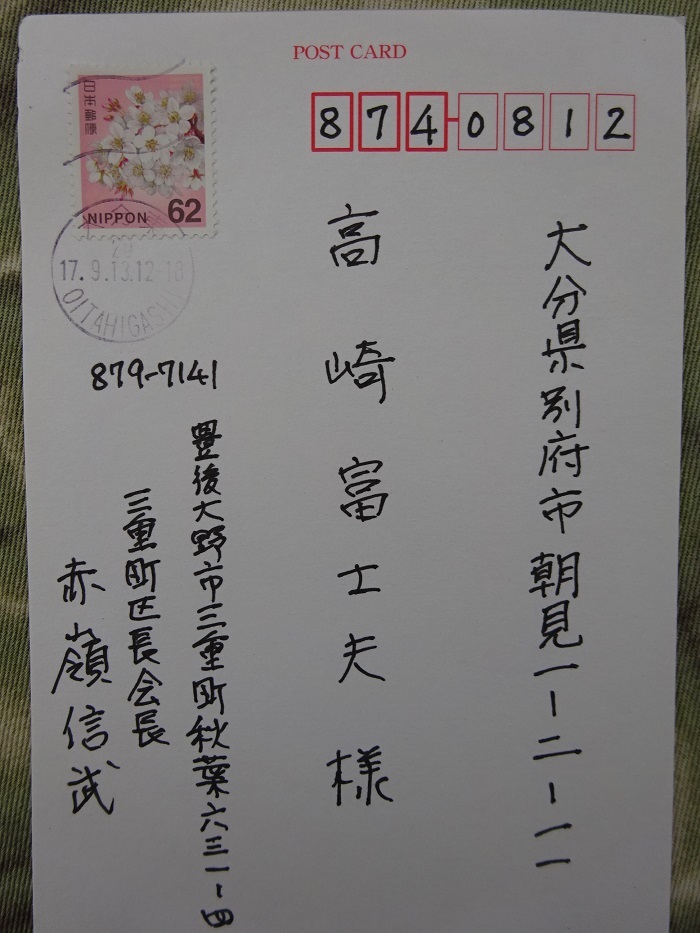 POST CARD
874-0812
大分県別府市朝見一-二-一一
高崎富士夫様
日本郵便
NIPPON 62
17.9.13.12-18
OITAHIGASHI
879-7141
豊後大野市三重町秋葉六三一-四
三重町区長会長
赤嶺信武